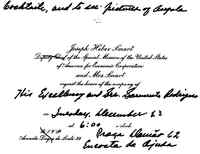 Cocktails, and to see pictures of Angola
Joseph Heber Smart
Director of the Special Mission of the United States
of America for Economic Cooperation
and Mrs Smart
request the honor of the company of
His Excellency and Sra Sarmento Rodrigues
on Tuesday, December 23
at 6:00 o'clock
Praça Damão 62
Encosta da Ajuda